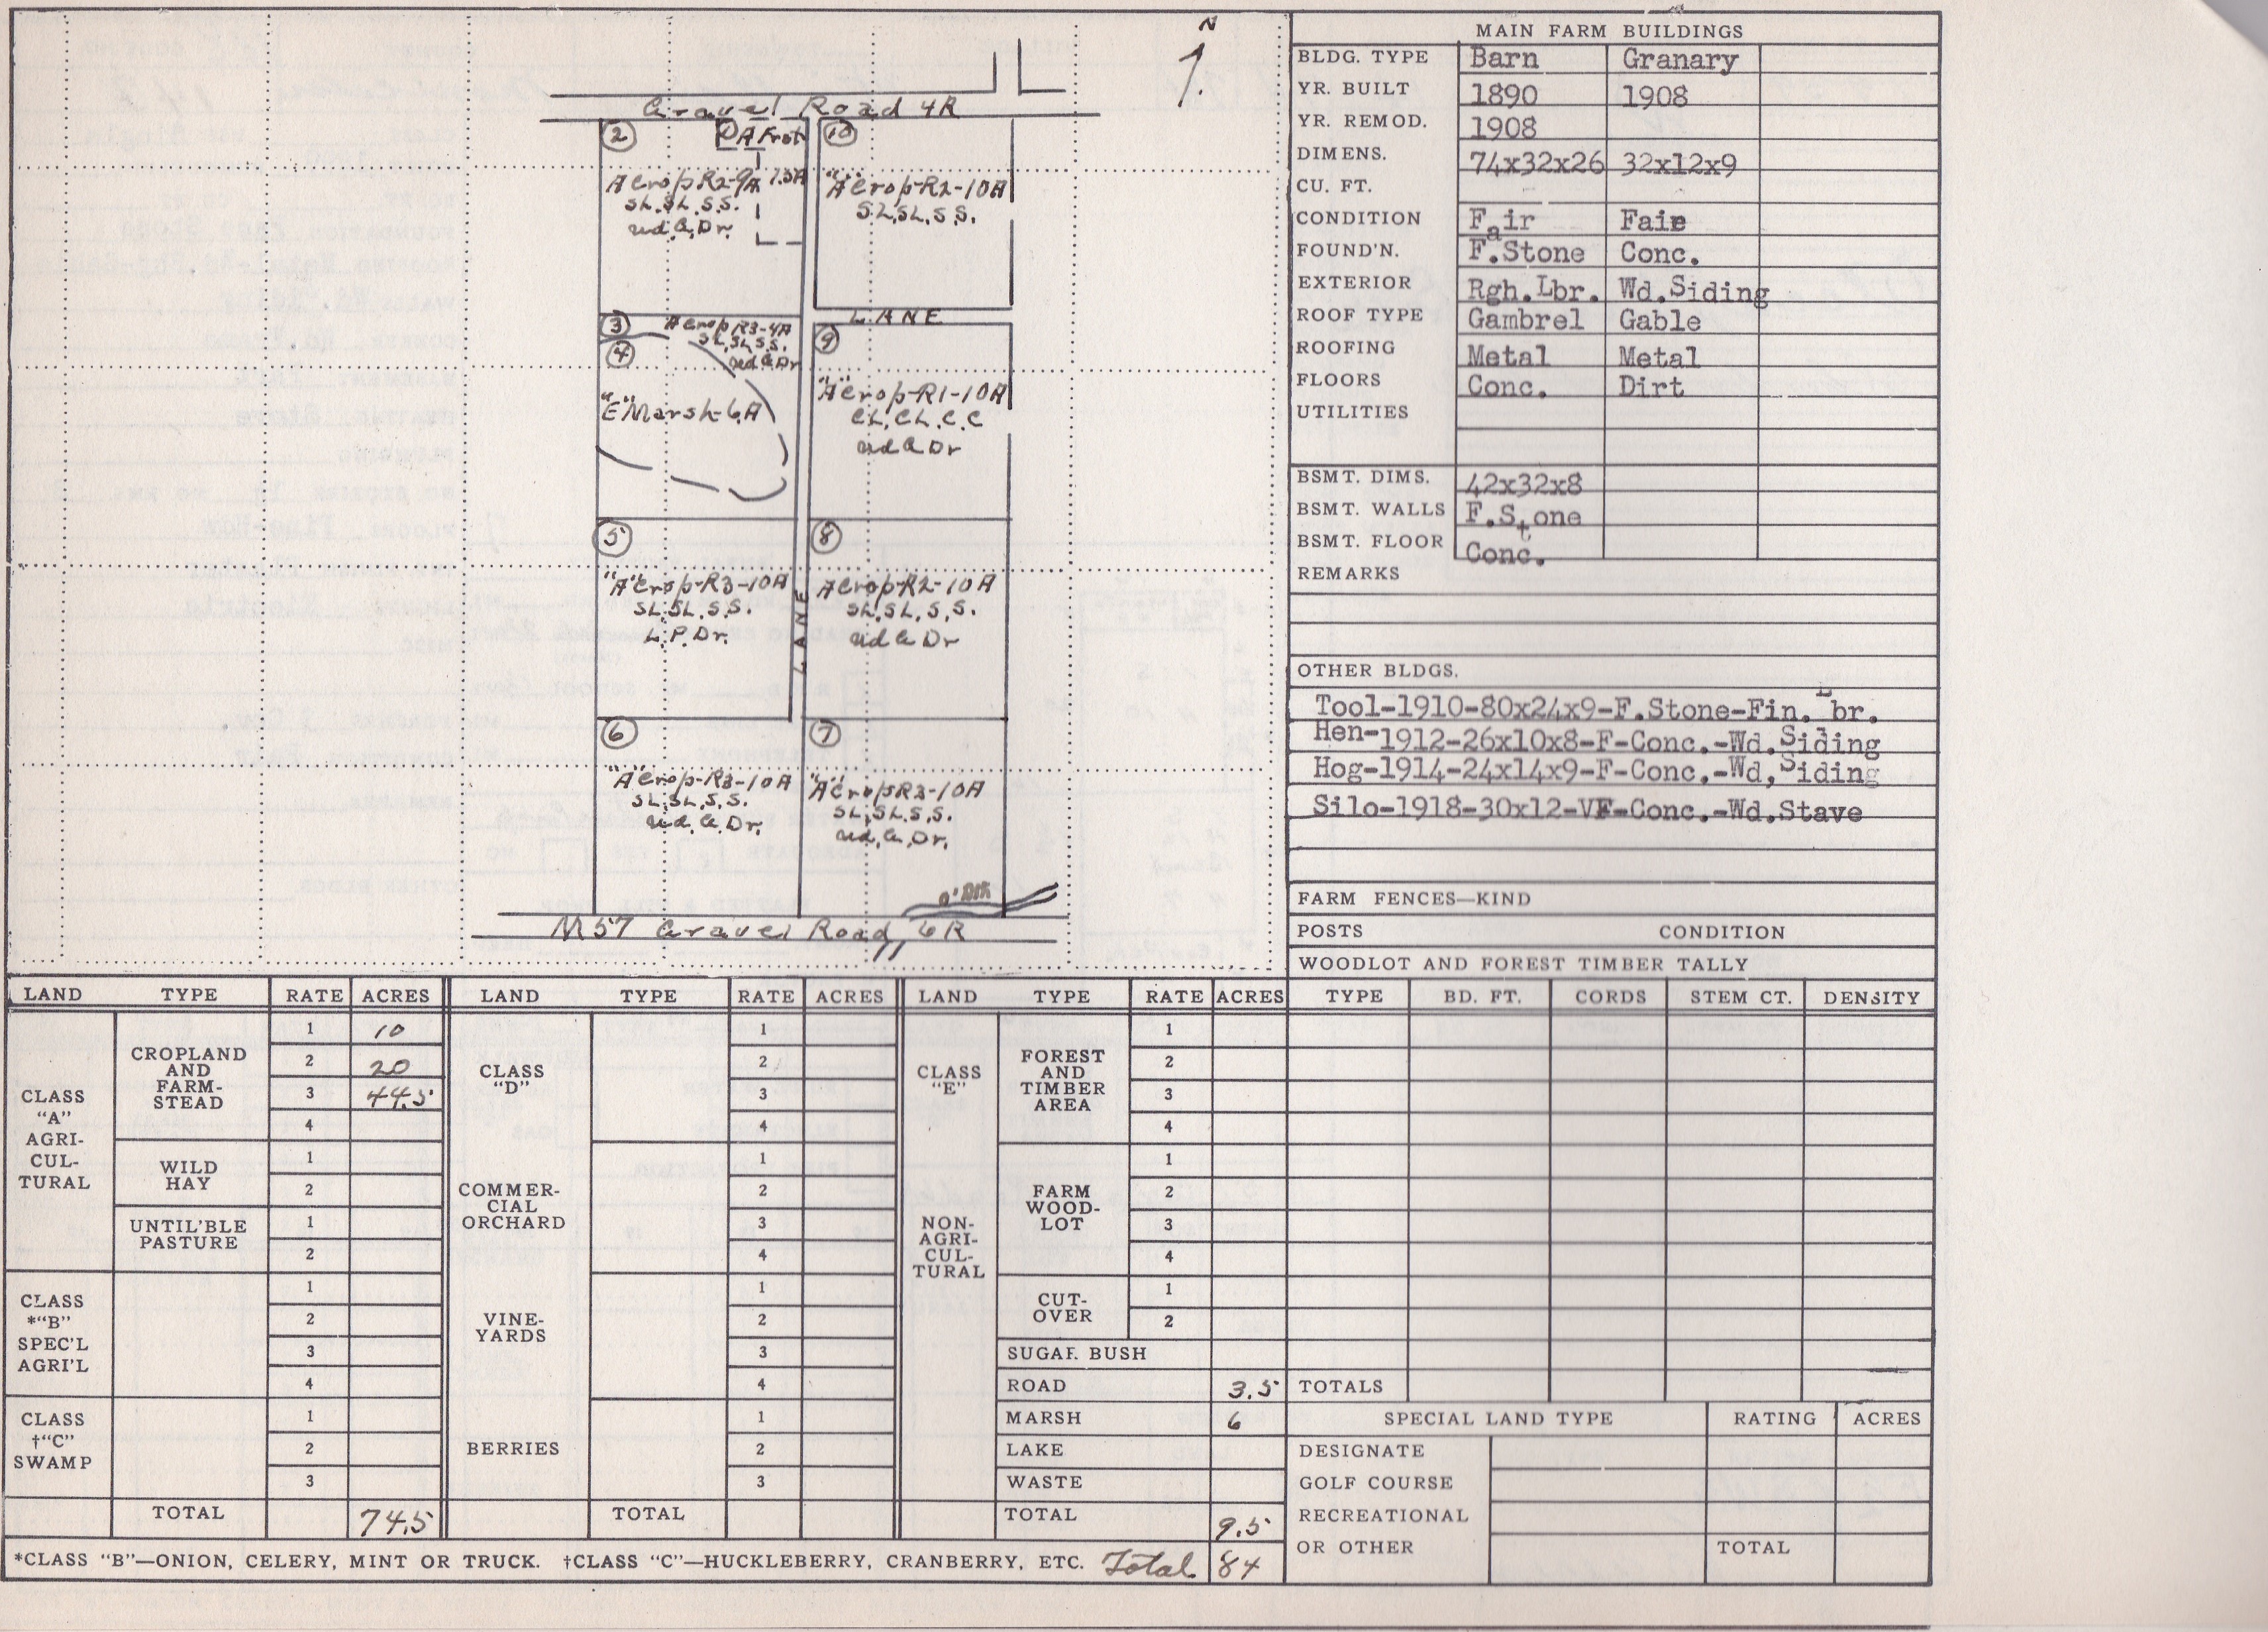 N
Gravel Road 4R
②
①
⑩
"A"crop-R2-9A
1.5A
"A"crop-R2-10A
SL.SL.S.S.
SL.SL.S.S.
ud.G.Dr.
LANE
③
"A"crop R3-4A
SL.SL.S.S.
ud G Dr
④
⑨
"E"Marsh-6A
"A"crop-R1-10A
CL.CL.C.C
ud G Dr
⑤
⑧
"A"crop-R3-10A
"A"crop-R2-10A
SL.SL.S.S.
SL.SL.S.S.
L.P.Dr.
ud G Dr
LANE
⑥
⑦
"A"crop-R3-10A
"A"crop-R3-10A
SL.SL.S.S.
SL.SL.S.S.
ud.G.Dr.
ud.G.Dr.
M57 Gravel Road 6R
MAIN FARM BUILDINGS
BLDG. TYPE Barn Granary
YR. BUILT 1890 1908
YR. REMOD. 1908
DIMENS. 74x32x26 32x12x9
CU. FT.
CONDITION Fair Fair
FOUND'N. F.Stone Conc.
EXTERIOR Rgh.Lbr. Wd.Siding
ROOF TYPE Gambrel Gable
ROOFING Metal Metal
FLOORS Conc. Dirt
UTILITIES
BSMT. DIMS. 42x32x8
BSMT. WALLS F.Stone
BSMT. FLOOR Conc.
REMARKS
OTHER BLDGS.
Tool-1910-80x24x9-F.Stone-Fin. Lbr.
Hen-1912-26x10x8-F-Conc.-Wd.Siding
Hog-1914-24x14x9-F-Conc.-Wd,Siding
Silo-1918-30x12-VF-Conc.-Wd.Stave
FARM FENCES—KIND
POSTS CONDITION
WOODLOT AND FOREST TIMBER TALLY
TYPE BD. FT. CORDS STEM CT. DENSITY
TOTALS
SPECIAL LAND TYPE RATING ACRES
DESIGNATE
GOLF COURSE
RECREATIONAL
OR OTHER TOTAL
LAND TYPE RATE ACRES
CLASS
"A"
AGRI-
CUL-
TURAL
CROPLAND
AND
FARM-
STEAD
1 10
2 20
3 44.5
4
WILD
HAY
1
2
UNTIL'BLE
PASTURE
1
2
CLASS
*"B"
SPEC'L
AGRI'L
1
2
3
4
CLASS
†"C"
SWAMP
1
2
3
TOTAL 74.5
LAND TYPE RATE ACRES
CLASS
"D"
1
2
3
4
COMMER-
CIAL
ORCHARD
1
2
3
4
VINE-
YARDS
1
2
3
4
BERRIES
1
2
3
TOTAL
LAND TYPE RATE ACRES
CLASS
"E"
NON-
AGRI-
CUL-
TURAL
FOREST
AND
TIMBER
AREA
1
2
3
4
FARM
WOOD-
LOT
1
2
3
4
CUT-
OVER
1
2
SUGAR BUSH
ROAD 3.5
MARSH 6
LAKE
WASTE
TOTAL 9.5
*CLASS "B"—ONION, CELERY, MINT OR TRUCK. †CLASS "C"—HUCKLEBERRY, CRANBERRY, ETC. Total 84